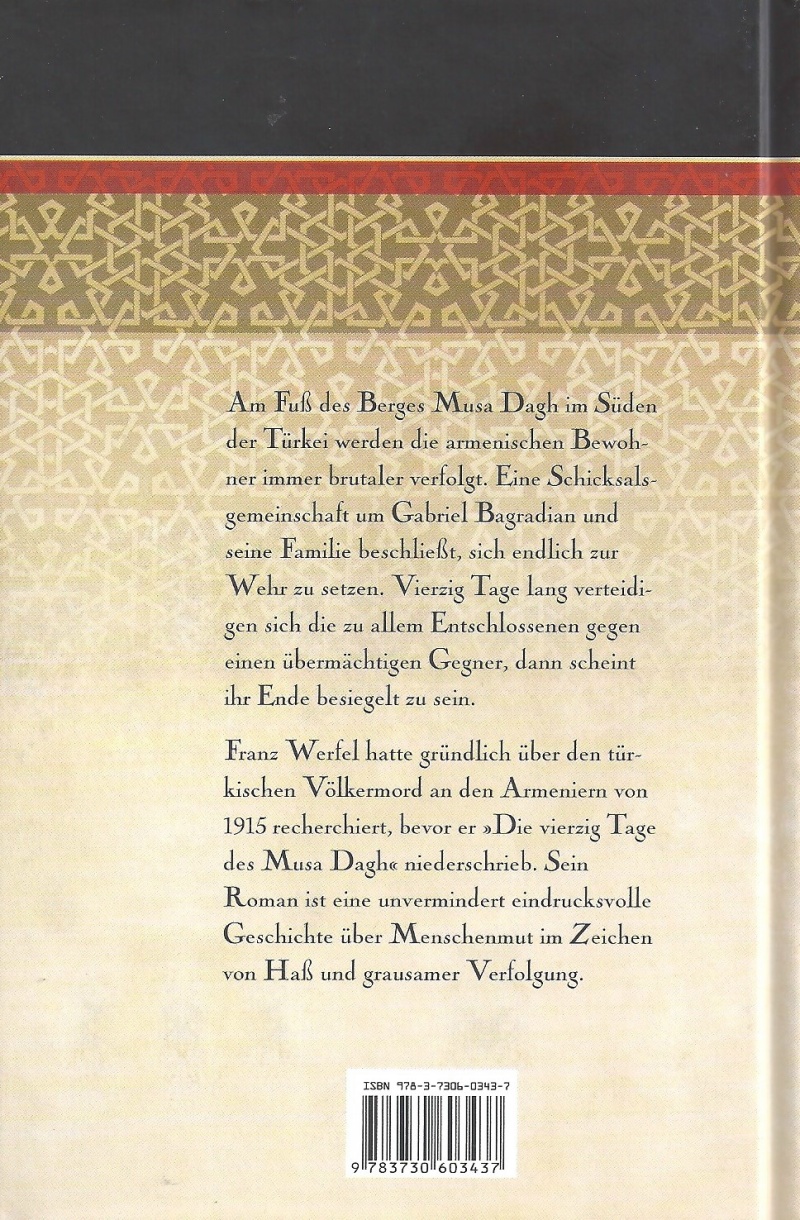 Am Fuß des Berges Musa Dagh im Süden
der Türkei werden die armenischen Bewoh-
ner immer brutaler verfolgt. Eine Schicksals-
gemeinschaft um Gabriel Bagradian und
seine Familie beschließt, sich endlich zur
Wehr zu setzen. Vierzig Tage lang verteidi-
gen sich die zu allem Entschlossenen gegen
einen übermächtigen Gegner, dann scheint
ihr Ende besiegelt zu sein.
Franz Werfel hatte gründlich über den tür-
kischen Völkermord an den Armeniern von
1915 recherchiert, bevor er »Die vierzig Tage
des Musa Dagh« niederschrieb. Sein
Roman ist eine unvermindert eindrucksvolle
Geschichte über Menschenmut im Zeichen
von Haß und grausamer Verfolgung.
ISBN 978-3-7306-0343-7
9 783730 603437